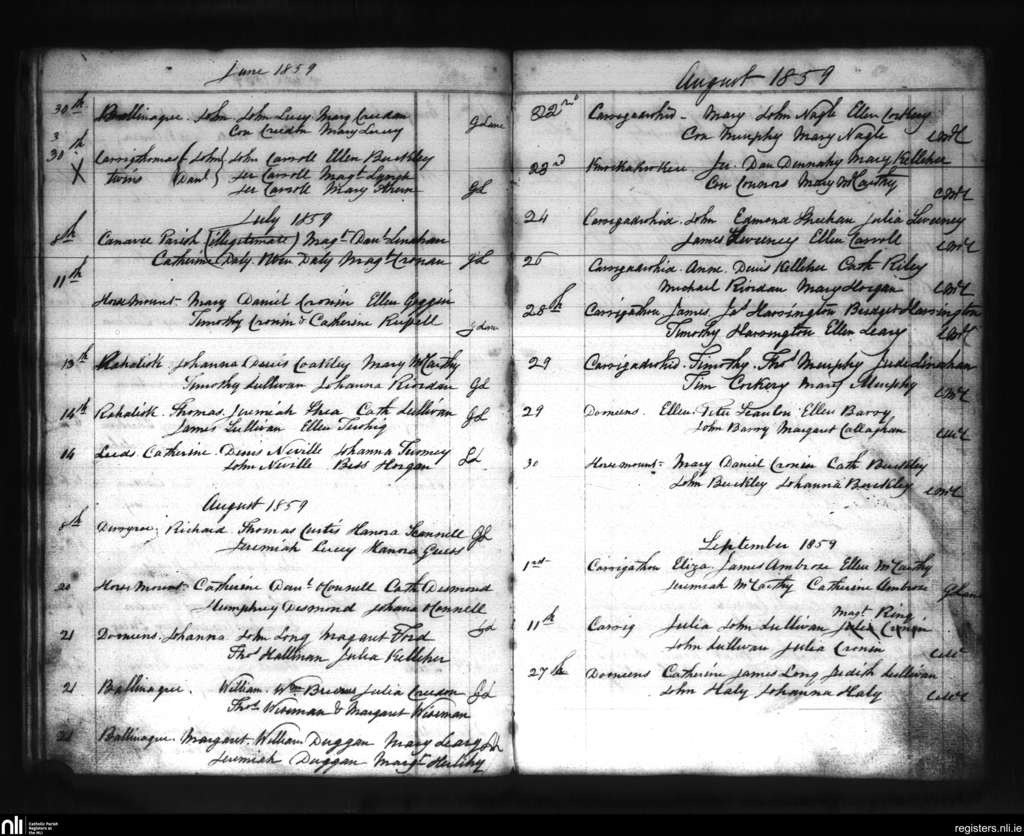 June 1859
30th Ballinagree John John Lucey Mary Creedon
Con Creedon Mary Lucey
30th Carrigthomas { John } John Carroll Ellen Buckley
X twins { Danl } Jer Carroll Magt Lynch
Jer Carroll Mary Ahern GL
July 1859
8th Canavee Parish (illegitimate) Magt Danl Linahan
Catherine Daly Daly Magt Cronan GL
11th
Horsemount Mary Daniel Cronin Ellen Goggin
Timothy Cronin & Catherine Russell
13th Rahalisk Johanna Denis Coakley Mary McCarthy
Timothy Sullivan Johanna Riordan GL
14th Rahalisk Thomas Jeremiah Shea Cath Sullivan
James Sullivan Ellen Twohig GL
14 Leeds Catherine Denis Neville Johanna Twomey
John Neville Bess Horgan
August 1859
8th Richard Thomas Curtis Hanora Scannell GL
Jeremiah Lucey Hanora
20 Horsemount Catherine Danl Connell Cath Desmond
Humphrey Desmond Johana Connell
21 Doonens Johanna John Long Magaret Ford
Thos Hallinan Julia Kelleher
21 Ballinagree William Wm Julia Creedon GL
Thos Wiseman & Margaret Wiseman
21 Ballinagree Margaret William Duggan Mary Leary
Jeremiah Duggan Margt Herlihy
August 1859
22nd Carrigadrohid Mary John Nagle Ellen Corkery
Con Murphy Mary Nagle
23rd Jer Dan Dennahy Mary Kelleher
Con Connors Mary McCarthy
24 Carrigadrohid John Edmond Sheehan Julia Sweeney
James Sweeney Ellen Carroll
26 Carrigadrohid Anne Denis Kelleher Cath Riley
Michael Riordan Mary Horgan
28th Carrigathou James Js Harrington Bridget Harrington
Timothy Harrington Ellen Leary
29 Carrigadrohid Timothy Thos Murphy Jude Linahan
Tim Corkery Mary Murphy
29 Doonens Ellen Peter Scanlon Ellen Barry
John Barry Margaret Callaghan
30 Horsemount Mary Daniel Cronin Cath Buckley
John Buckley Johanna Buckley
September 1859
1rst Carrigathou Eliza James Ambrose Ellen McCarthy
Jeremiah McCarthy Catherine Ambrose
Magt Ring
11th Carrig Julia John Sullivan Julia Cronin
John Sullivan Julia Cronin
27th Doonens Catherine James Long Judith Sullivan
John Haly Johanna Haly
nli Catholic Parish Registers at the NLI
registers.nli.ie